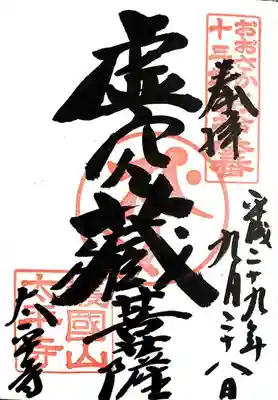 奉拝
平成二十九年
九月二十八日
虚空蔵菩薩
太平寺
おおさか
十三
番
國山
太平寺